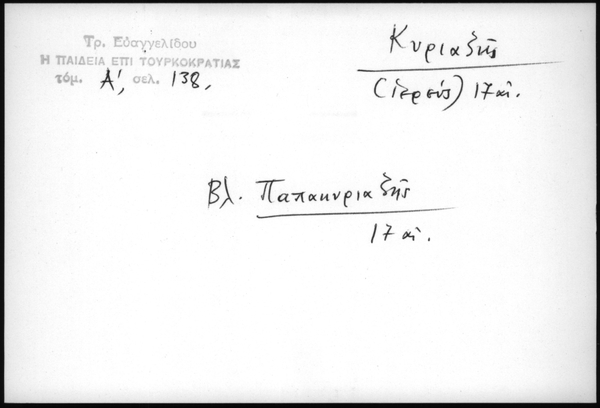 Τρ. Εὐαγγελίδου
Η ΠΑΙΔΕΙΑ ΕΠΙ ΤΟΥΡΚΟΚΡΑΤΙΑΣ
τόμ. Α', σελ. 138,
Κυριαζῆς
(ἱερεύς) 17 αἰ.
Βλ. Παπακυριαζῆς
17 αἰ.